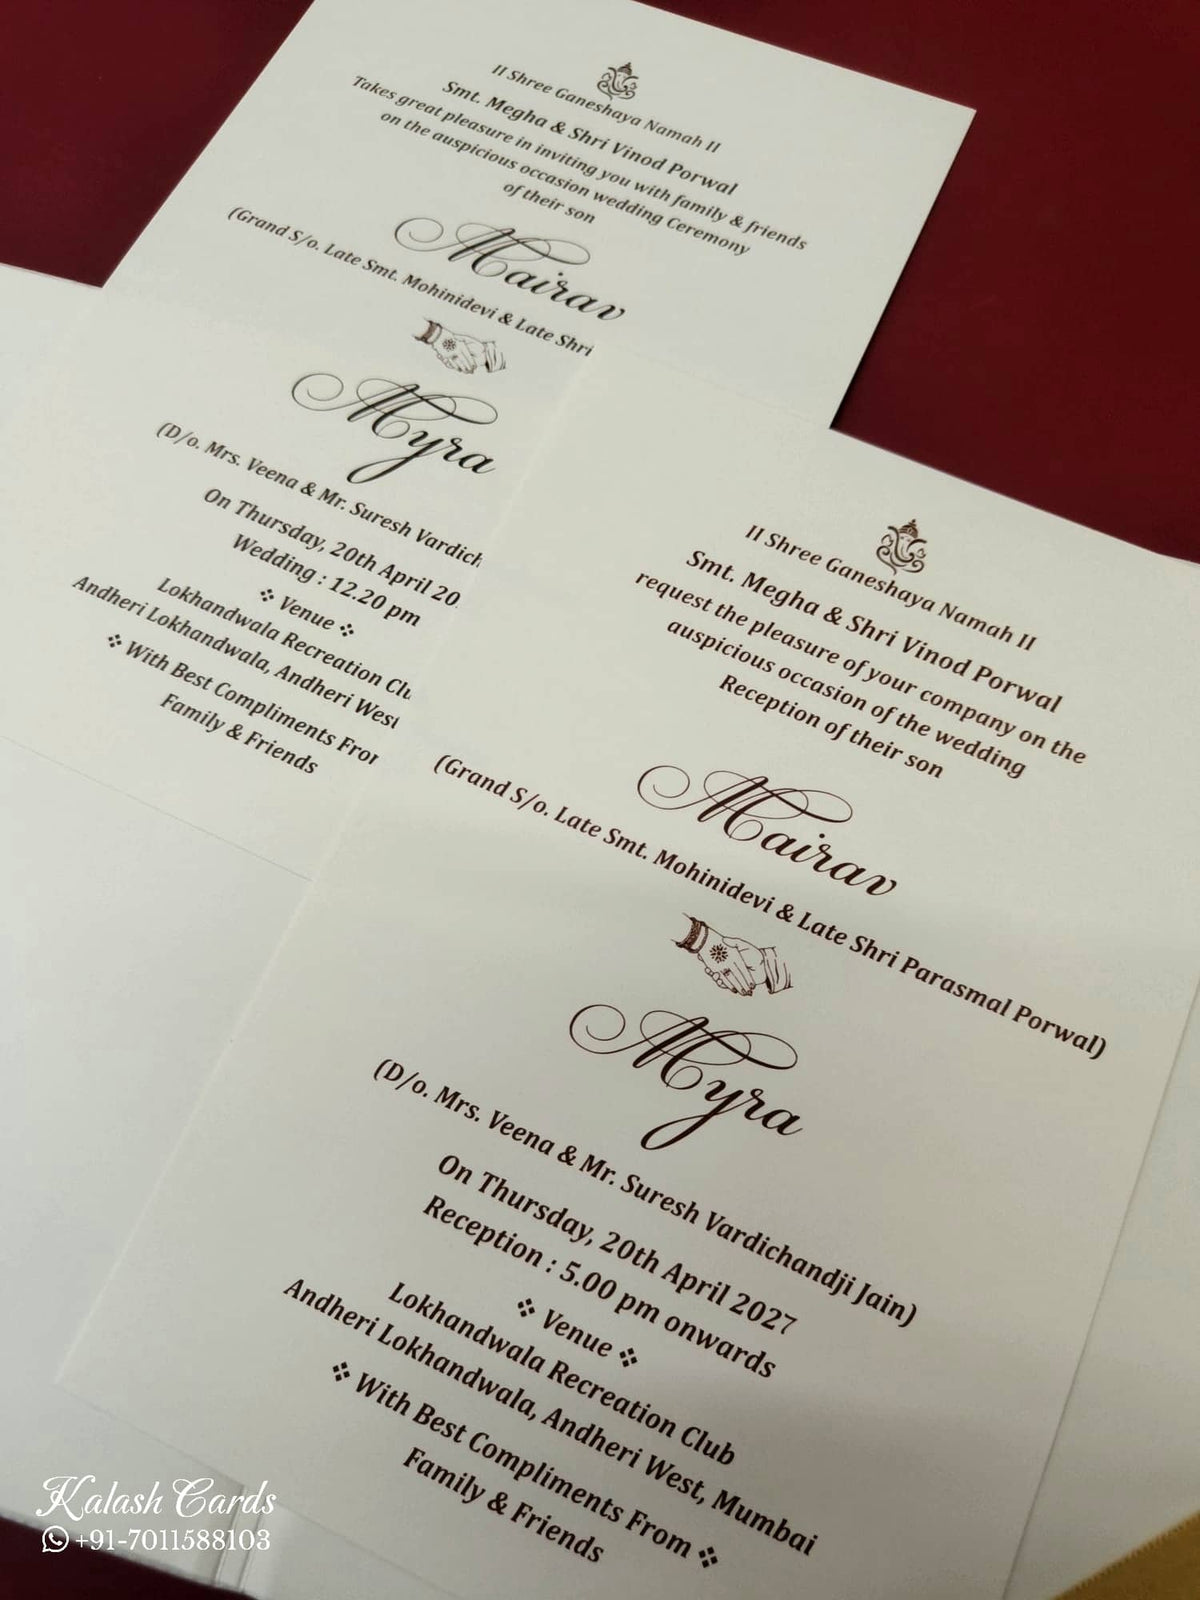 II Shree Ganeshaya Namah II
Smt. Megha & Shri Vinod Porwal
Takes great pleasure in inviting you with family & friends
on the auspicious occasion wedding Ceremony
of their son
Mairav
(Grand S/o. Late Smt. Mohinidevi & Late Shri
Myra
(D/o. Mrs. Veena & Mr. Suresh
On Thursday, 20th April
Wedding : 12.20 pm
❖ Venue ❖
Lokhandwala Recreation
Andheri Lokhandwala, Andheri
❖ With Best Compliments
Family & Friends
II Shree Ganeshaya Namah II
Smt. Megha & Shri Vinod Porwal
request the pleasure of your company on the
auspicious occasion of the wedding
Reception of their son
Mairav
(Grand S/o. Late Smt. Mohinidevi & Late Shri Parasmal Porwal)
Myra
(D/o. Mrs. Veena & Mr. Suresh Vardichandji Jain)
On Thursday, 20th April 2027
Reception : 5.00 pm onwards
❖ Venue ❖
Lokhandwala Recreation Club
Andheri Lokhandwala, Andheri West, Mumbai
❖ With Best Compliments From ❖
Family & Friends
Kalash Cards
+91-7011588103